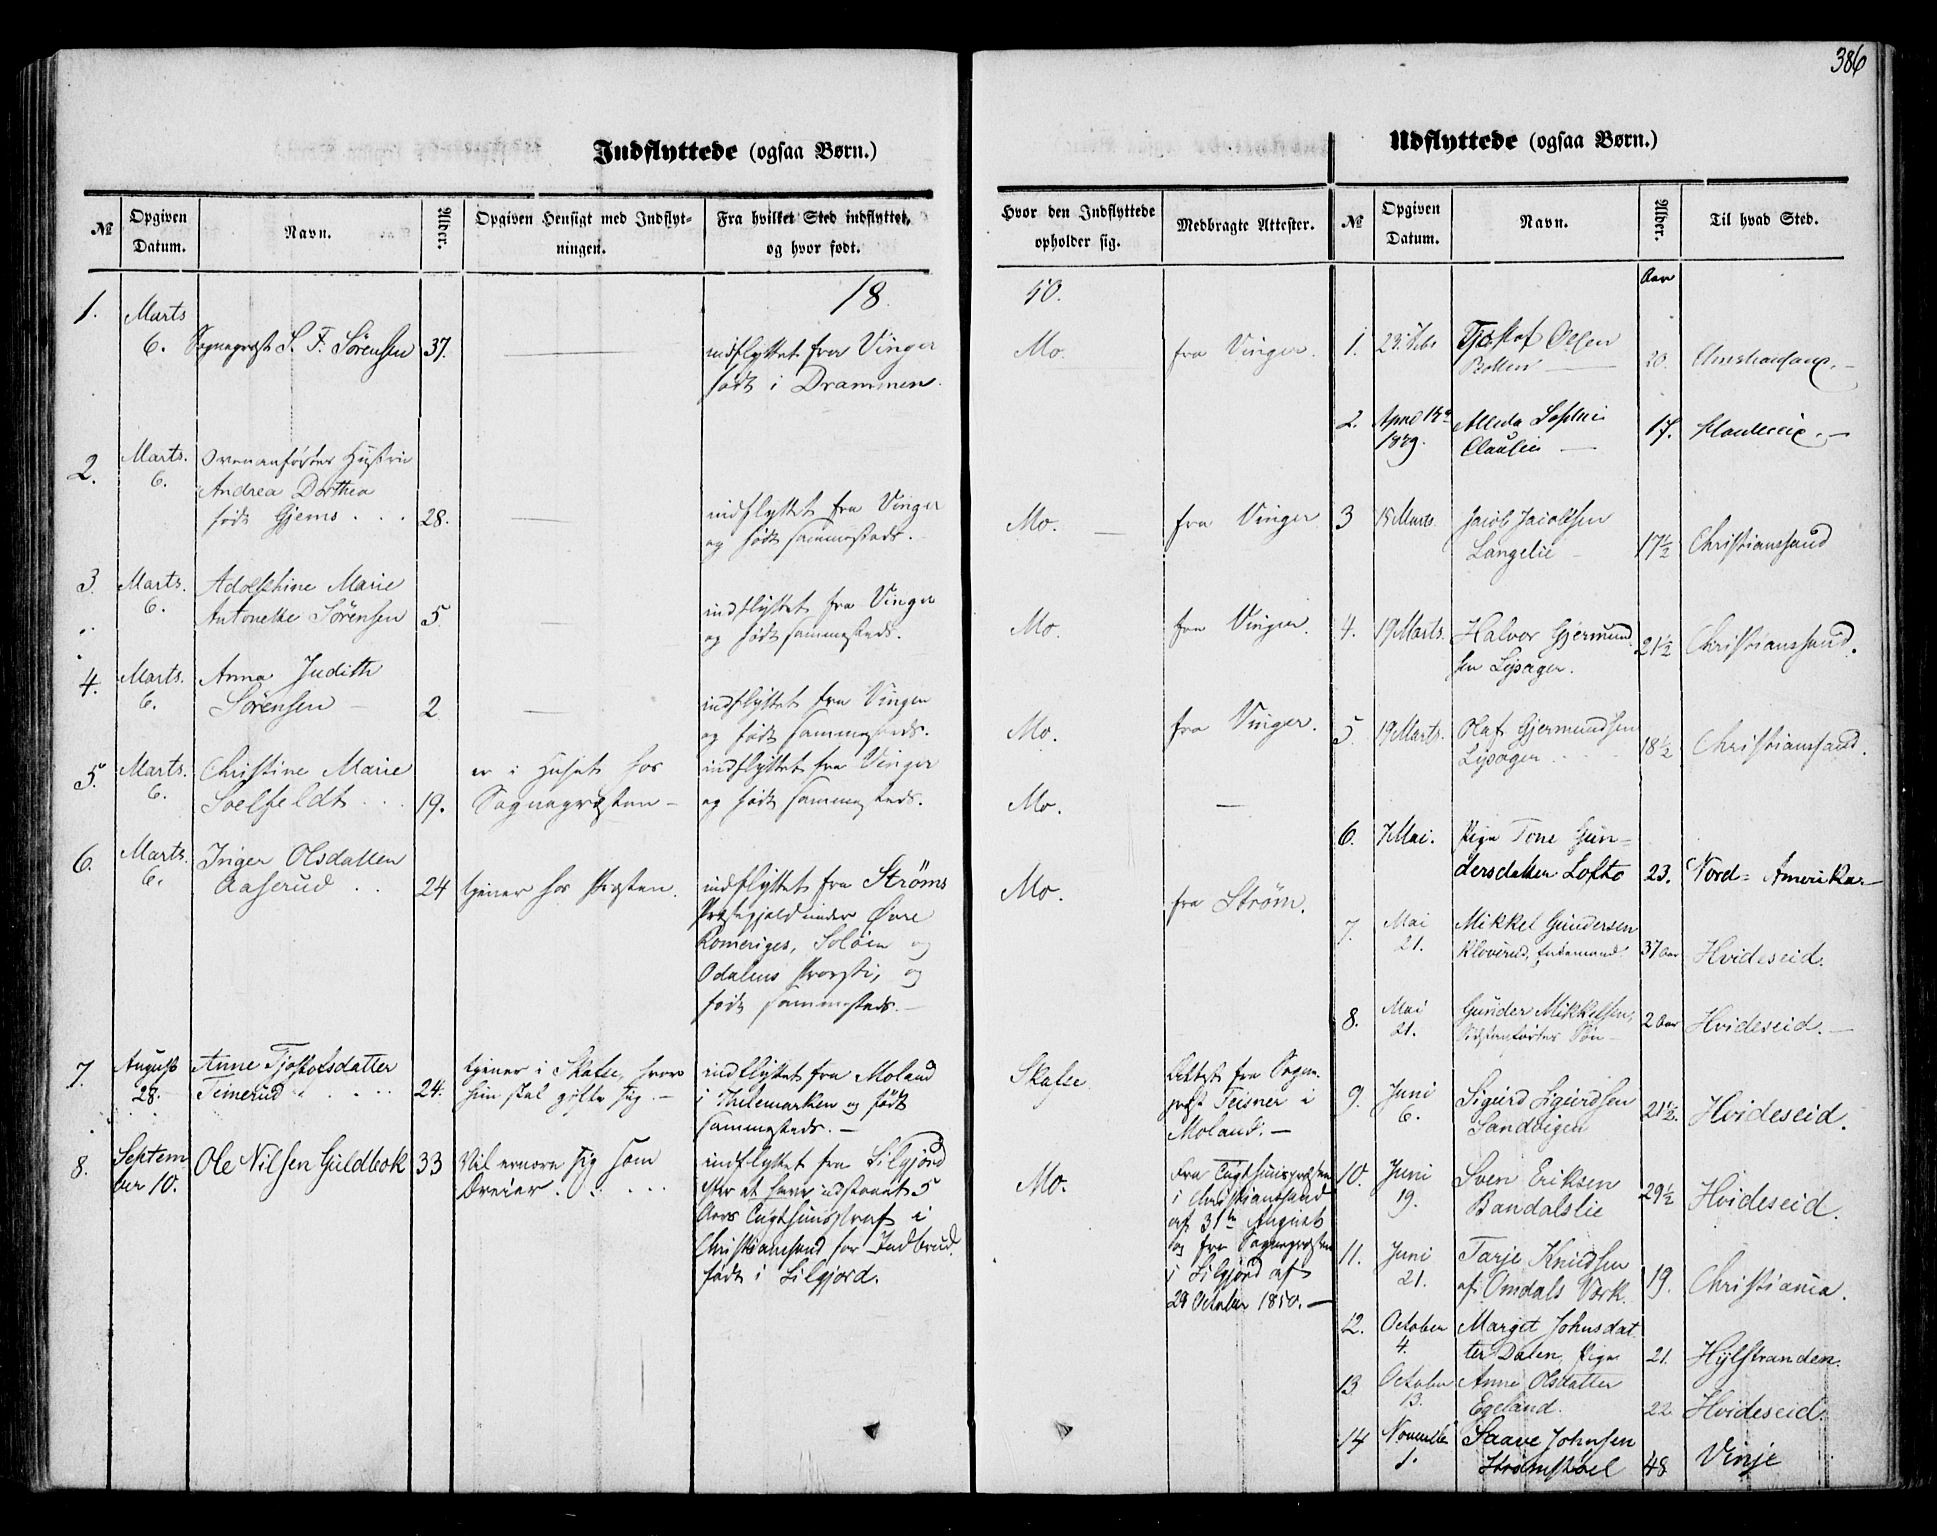 386
Indflyttede (ogsaa Børn.)
№
Opgiven Datum.
Navn.
Alder.
Opgiven Hensigt med Indflyt-
ningen.
Fra hvilket Sted indflyttet,
og hvor født.
Hvor den Indflyttede
opholder sig.
Medbragte Attester.
18
50.
1. Marts
6. Sognepræst S. F. Sørensen 37.
indflyttet fra Vinger
født i Drammen.
Mo.
fra Vinger.
2. Marts. Ovenanførtes Hustrue
6. Andrea Dorthea
født Gjems . . . 28.
indflyttet fra Vinger
og født sammesteds.
Mo.
fra Vinger
3. Marts. Adolphine Marie
6. Antonette Sørensen 5
indflyttet fra Vinger
og født sammesteds.
Mo.
fra Vinger.
4. Marts. Anna Judith
6. Sørensen 2
indflyttet fra Vinger
og født sammesteds.
Mo.
fra Vinger.
5. Marts. Christine Marie
6. Soelfeldt . . . 19.
er i Huset hos
Sognepræsten
indflyttet fra Vinger
og født sammesteds.
Mo.
6. Marts. Inger Olsdatter
6. Aaserud . . 24
tjener hos Præsten.
indflyttet fra Strøms
Præstegjeld under Øvre
Romeriges, Soløer og
Odalens Provsti, og
født sammesteds.
Mo.
fra Strøm.
7. August Anne Tjostolsdatter
28. Timerud . . . . 24.
tjener i Skafse, hvor
hun skal gifte sig.
indflyttet fra Moland
i Thelemarken og født
sammesteds.
Skafse
Attest fra Sogne-
præst Teisner i
Moland.
8. Septem Ole Nilsen Guldbok 33
ber 10.
Vil ernære sig som
Dreier . . . .
indflyttet fra Silgjord
efter at have udstaaet 5
Aars Tugthuusstraf i
Christiansand for Indbrud.
født i Silgjord.
Mo.
Fra Tugthuuspræsten
i Christianssand
af 31te August
og fra Sognepræsten
i Silgjord af
29 October 1850.
Udflyttede (ogsaa Børn.)
№
Opgiven Datum.
Navn.
Alder.
Til hvad Sted.
Aar
1. 23. Febr Olsen
20.
2. April
1849. Clausen 17.
3 15 Marts. Jacob Jacobsen
Langelie 17½ Christianssand
4. 19 Marts. Halvor Gjermund
sen Lysager. 21½ Christianssand.
5. 19 Marts. Olaf Gjermundsen
Lysager 18½ Christianssand.
6. 7 Mai. Pige Tone Gun-
dersdatter Lofto 23. Nord-Amerika
7. Mai Mikkel Gundersen
21. Kloverud, 37 Aar Hvideseid.
8. Mai Gunder Mikkelsen,
21. Sidstanførtes Søn 2 Aar Hvideseid.
9. Juni Sigurd Sigurdsen
6. Sandvigen 21½. Hvideseid.
10. Juni Sven Eriksen
19. Bandalslie 29½ Hvideseid.
11. Juni Tarje Knudsen
21. af Omdals Værk. 19. Christiania.
12. October Marget Johnsdat
4. ter Dalen, Pige 21. Hylstranden.
13 October Anne Olsdatter
13. Egeland. 22 Hvideseid.
14 November Saave Johnsen
1. 48 Vinje